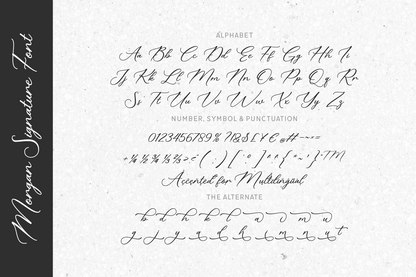 Morgan Signature Font
ALPHABET
Aa Bb Cc Dd Ee Ff Gg Hh Ii
Jj Kk Ll Mm Nn Oo Pp Qq Rr
Ss Tt Uu Vv Ww Xx Yy Zz
NUMBER, SYMBOL & PUNCTUATION
0123456789%
Accented for Multilingual
THE ALTERNATE
b d h k l a m u
g y a d h i k l m n u t